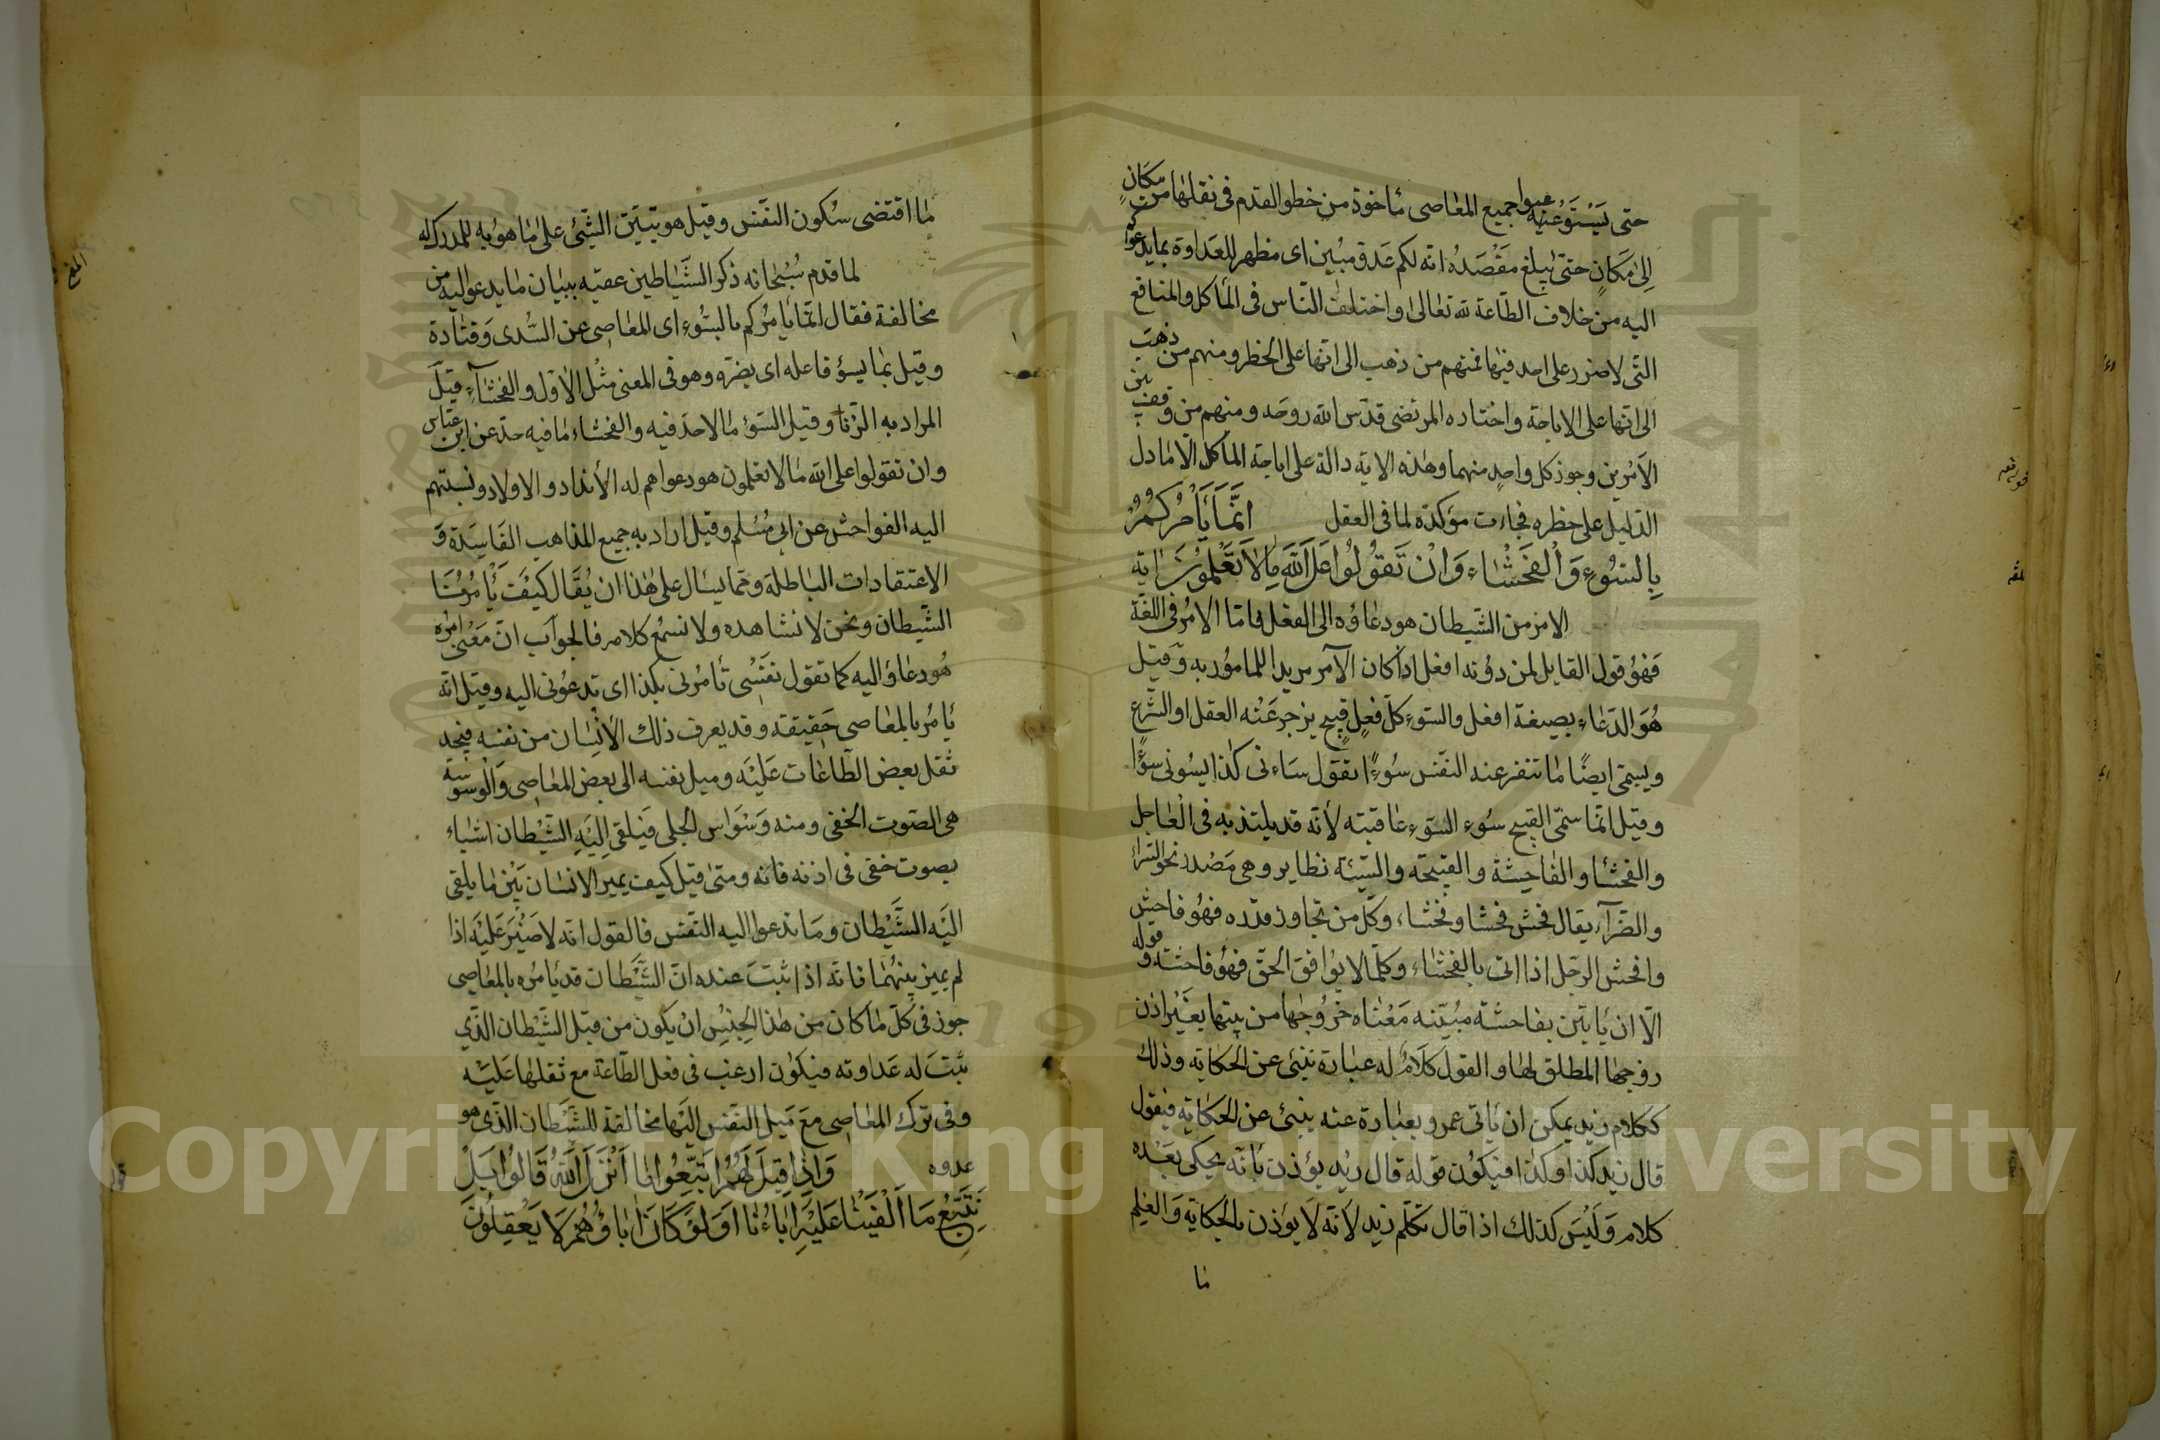 حتى يستوعبوا جميع المعاصى مأخوذة من خطو القدم فى نقلها من مكان
إلى مكان حتى يبلغ مقصده انه لكم عدو مبين اى مظهر للعداوة بما يدعوكم
اليه من خلاف الطاعة لله تعالى واختلف الناس فى المأكل والمنافع
التى لا ضرر على احد فيها فمنهم من ذهب الى انها على الحظر ومنهم من ذهب
الى انها على الاباحة واختاره المرتضى قدس الله روحه ومنهم من وقف بين
الأمرين وجوز كل واحد منهما وهذه الاية دالة على اباحة المأكل الا ما دل
الدليل على حظره فجاءت مؤكدة لما فى العقل انما يأمركم
بالسوء والفحشاء وان تقولوا على الله ما لا تعلمون اية
الامر من الشيطان هو دعاؤه الى الفعل فاما الامر فى اللغة
فهو قول القايل لمن دونه افعل اذا كان الآمر مريدا للمامور به وقيل
هو الدعاء بصيغة افعل والسوء كل فعل قبيح يزجر عنه العقل او الشرع
ويسمى ايضا ما تنفر عنه النفس سوءا تقول ساءنى كذا يسونى سوءا
وقيل انما سمى القبيح سوء السوء عاقبته لأنه قد يلتذ به فى العاجل
والفحشا والفاحشة والقبيحة والسيئة نظاير وهى مصدر نحو السراء
والضرآء يقال فحش فحشا وفحشاء وكل من تجاوز قدره فهو فاحش
وافحش الرجل اذا اتى بالفحشاء وكلما لا يوافق الحق فهو فاحشة وقوله
الا ان يأتين بفاحشة مبينه معناه خروجها من بيتها بغير اذن
زوجها المطلق لها والقول كلام له عبارة تنبئ عن الحكاية وذلك
ككلام زيد يمكن ان يأتى عمرو بعبارة عنه ينبئ عن الحكاية فيقول
قال زيد كذا وكذا فيكون قوله قال زيد يؤذن بأنه يحكى بعده
كلام وليس كذلك اذا قال تكلم زيد لأنه لا يوذن بالحكاية والعلم
ما
ما اقتضى سكون النفس وقيل هو تبين الشئ على ما هو به للمدرك له
لما قدم سبحانه ذكر الشياطين عقبه ببيان ما يدعو اليه من
مخالفة فقال انما يأمركم بالسوء اى المعاصى عن السدى وقتادة
وقيل بما يسؤ فاعله اى يضره وهو فى المعنى مثل الاول والفحشآء قيل
المراد به الزنا وقيل السؤ ما لا حد فيه والفحشاء ما فيه حد عن ابن عباس
وان تقولوا على الله ما لا تعلمون هو دعواهم له الأنداد والاولاد ونسبتهم
اليه الفواحش عن ابى مسلم وقيل اراد به جميع المذاهب الفاسدة و
الاعتقادات الباطلة ومما يسال على هذا ان يقال كيف يأمرنا
الشيطان ونحن لا نشاهده ولا نسمع كلامه فالجواب ان معنى امره
هو دعاؤ اليه كما تقول نفسى تأمرنى بكذا اى تدعونى اليه وقيل انه
يأمر بالمعاصى حقيقة وقد يعرف ذلك الأنسان من نفسه فيجد
ثقل بعض الطاعات عليه وميل نفسه الى بعض المعاصى والوسوسة
هى الصوت الخفى ومنه وسواس الحلى فيلقى اليه الشيطان اشياء
بصوت خفى فى اذنه فانه ومتى قيل كيف يميز الانسان بين ما يلقى
اليه الشيطان وما تدعوا اليه النفس فالقول انه لا ضير عليه اذا
لم يميز بينهما فانه اذا ثبت عنده ان الشيطان قد يأمره بالمعاصى
جوز فى كل ما كان من هذا الجنس ان يكون من قبل الشيطان الذى
ثبت له عداوته فيكون ارغب فى فعل الطاعة مع ثقلها عليه
وفى ترك المعاصى مع ميل النفس اليها مخالفة للشيطان الذى هو
عدوه واذا قيل لهم اتبعوا ما انزل الله قالوا بل
نتبع ما الفينا عليه اباءنا اولو كان اباؤهم لا يعقلون
Copyright © King Saud University